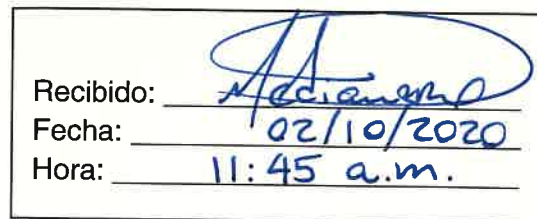 Recibido:
Fecha: 02/10/2020
Hora: 11:45 a.m.